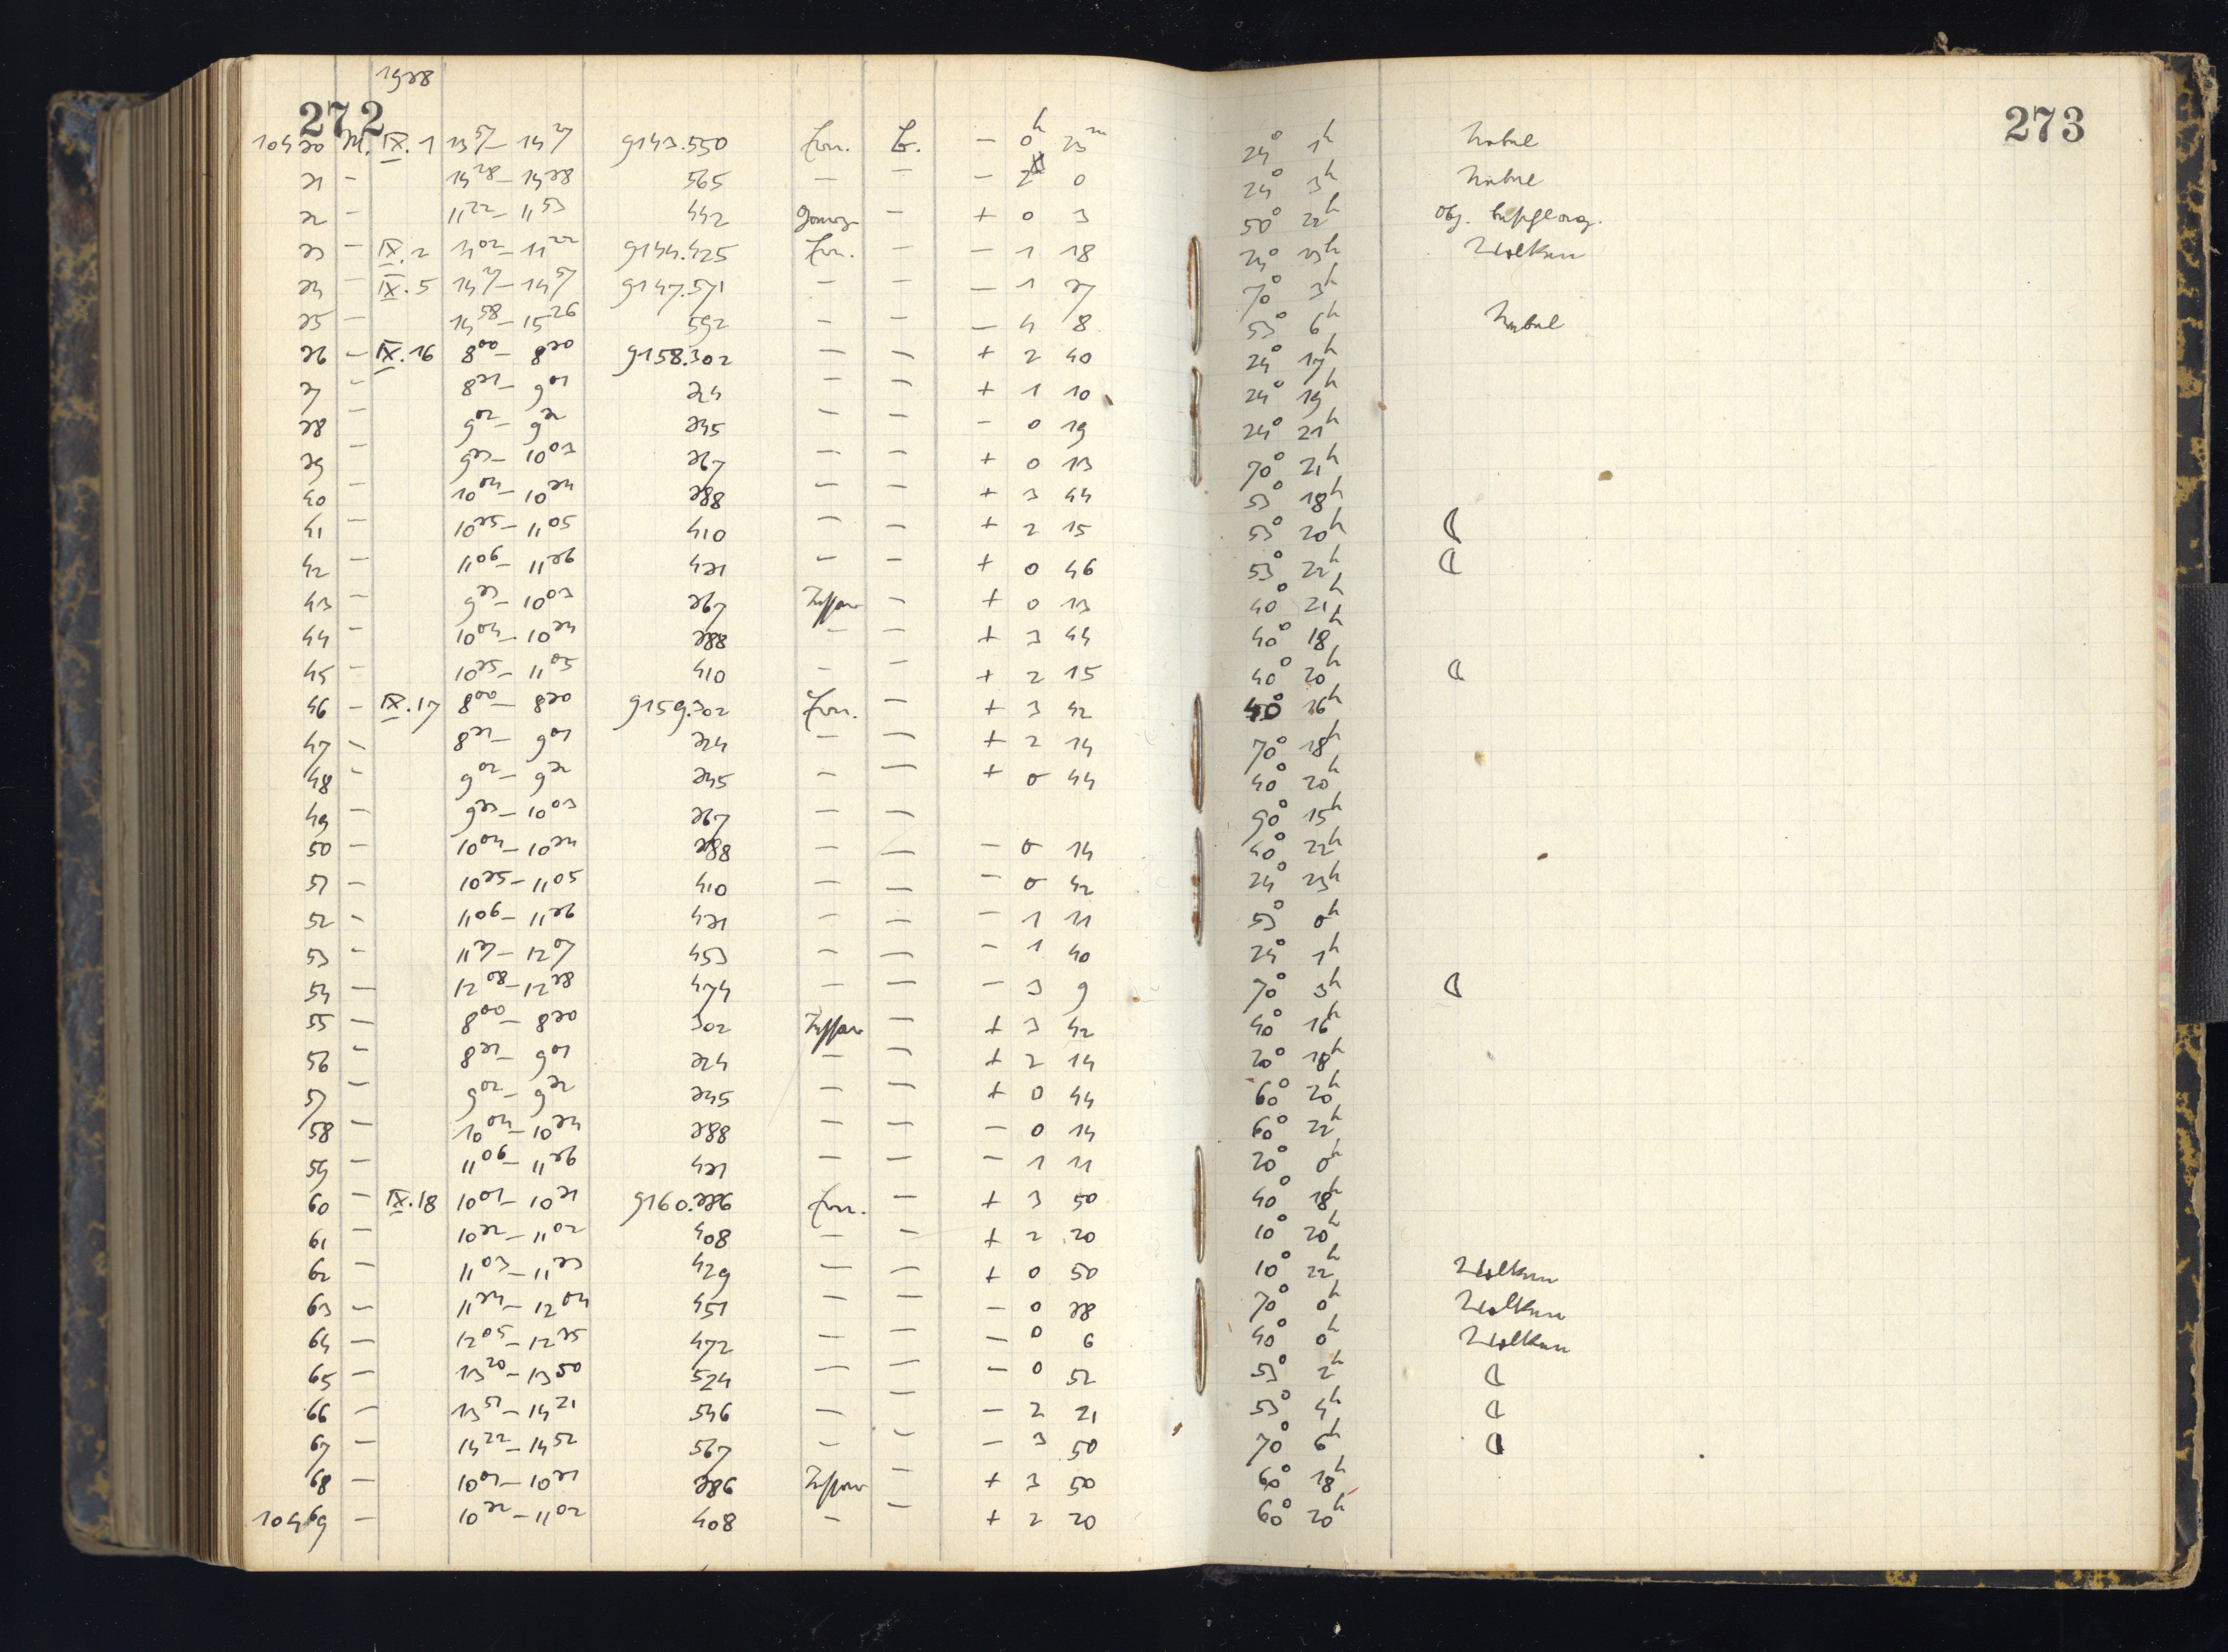 272
273
1938
10430 M. IX. 1 13⁵⁷ – 14²⁷ 9143.550 Ern. – 0ʰ 23ᵐ 24° 1ʰ Nebel
31 – 14²⁸ – 14³⁸ 565 – – – 0 24° 3ʰ Nebel
32 – 11²² – 11⁵³ 442 – + 0 3 50° 22ʰ Obj. beschlag.
33 – IX. 2 11⁰² – 11²² 9144.425 Ern. – – 1 18 24° 23ʰ Wolken
34 – IX. 5 14²⁷ – 14⁵⁷ 9147.571 – – – 1 37 70° 3ʰ
35 – 14⁵⁸ – 15²⁶ 592 – – – 4 8 53° 6ʰ Nebel
36 – IX. 16 8⁰⁰ – 8³⁰ 9158.302 – – + 2 40 24° 17ʰ
37 – 8³¹ – 9⁰¹ 324 – – + 1 10 24° 19ʰ
38 – 9⁰² – 9³² 345 – – – 0 19 24° 21ʰ
39 – 9³³ – 10⁰³ 367 – – + 0 13 70° 21ʰ
40 – 10⁰⁴ – 10³⁴ 388 – – + 3 44 53° 18ʰ
41 – 10³⁵ – 11⁰⁵ 410 – – + 2 15 53° 20ʰ ☾
42 – 11⁰⁶ – 11³⁶ 431 – – + 0 46 53° 22ʰ ☾
43 – 9³³ – 10⁰³ 367 Tessar – + 0 13 40° 21ʰ
44 – 10⁰⁴ – 10³⁴ 388 – – + 3 44 40° 18ʰ
45 – 10³⁵ – 11⁰⁵ 410 – – + 2 15 40° 20ʰ ☾
46 – IX. 17 8⁰⁰ – 8³⁰ 9159.302 Ern. – + 3 42 40° 16ʰ
47 – 8³¹ – 9⁰¹ 324 – – + 2 14 70° 18ʰ
48 – 9⁰² – 9³² 345 – – + 0 44 40° 20ʰ
49 – 9³³ – 10⁰³ 367 – – 90° 15ʰ
50 – 10⁰⁴ – 10³⁴ 388 – – – 0 14 40° 22ʰ
51 – 10³⁵ – 11⁰⁵ 410 – – – 0 42 24° 23ʰ
52 – 11⁰⁶ – 11³⁶ 431 – – – 1 11 53° 0ʰ
53 – 11³⁷ – 12⁰⁷ 453 – – – 1 40 24° 1ʰ
54 – 12⁰⁸ – 12³⁸ 474 – – – 3 9 70° 3ʰ ☾
55 – 8⁰⁰ – 8³⁰ 302 Tessar – + 3 42 40° 16ʰ
56 – 8³¹ – 9⁰¹ 324 – – + 2 14 20° 18ʰ
57 – 9⁰² – 9³² 345 – – + 0 44 60° 20ʰ
58 – 10⁰⁴ – 10³⁴ 388 – – – 0 14 60° 22ʰ
59 – 11⁰⁶ – 11³⁶ 431 – – – 1 11 20° 0ʰ
60 – IX. 18 10⁰¹ – 10³¹ 9160.386 Ern. – + 3 50 40° 18ʰ
61 – 10³² – 11⁰² 408 – – + 2 20 10° 20ʰ
62 – 11⁰³ – 11³³ 429 – – + 0 50 10° 22ʰ Wolken
63 – 11³⁴ – 12⁰⁴ 451 – – – 0 38 70° 0ʰ Wolken
64 – 12⁰⁵ – 12³⁵ 472 – – – 0 9 40° 0ʰ Wolken
65 – 13²⁰ – 13⁵⁰ 524 – – – 0 52 53° 2ʰ ☾
66 – 13⁵¹ – 14²¹ 546 – – – 2 21 53° 4ʰ ☾
67 – 14²² – 14⁵² 567 – – – 3 50 70° 6ʰ ☾
68 – 10⁰¹ – 10³¹ 386 Tessar – + 3 50 60° 18ʰ
10469 – 10³² – 11⁰² 408 – – + 2 20 60° 20ʰ